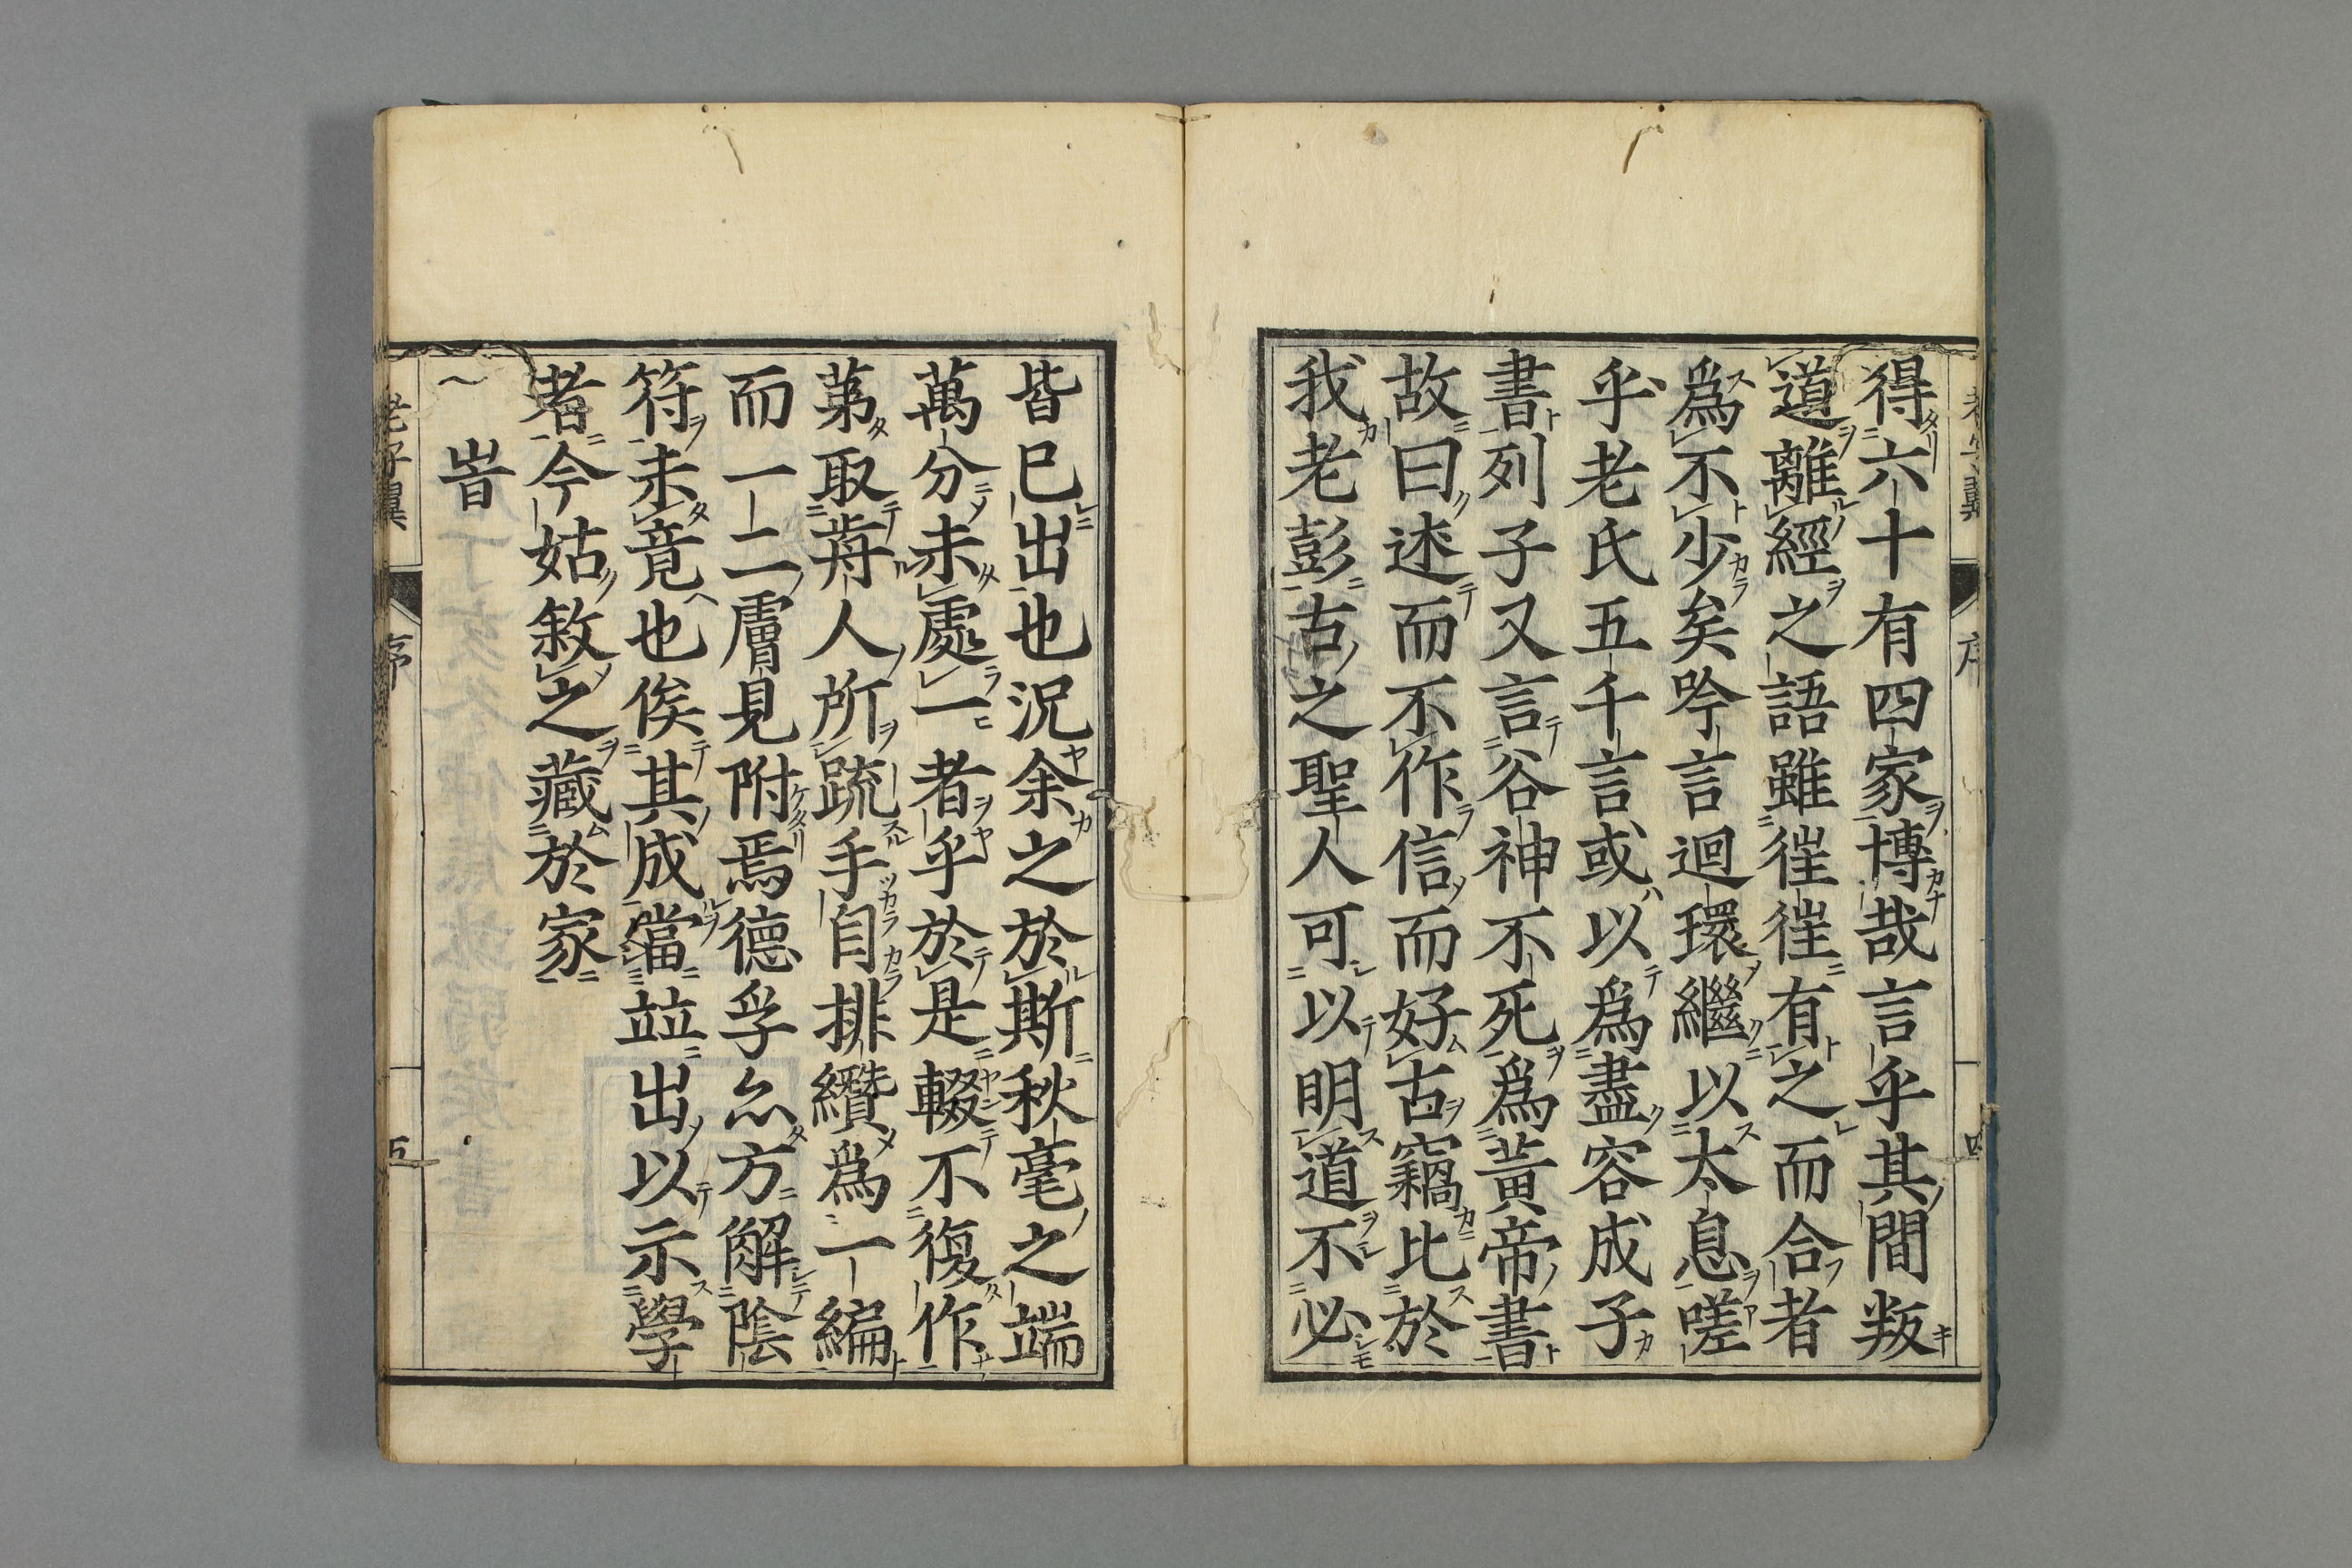 得六十有四家博哉言乎其間叛
道離經之語雖徃徃有之而合者
爲不少矣吟言迴環繼以太息嗟
乎老氏五千言或以爲盡容成子
書列子又言谷神不死爲黃帝書
故曰述而不作信而好古竊比於
我老彭古之聖人可以明道不必
皆已出也況余之於斯秋毫之端
萬分未處一者乎於是輟不復作
苐取前人所疏手自排纘爲一編
而一二膚見附焉德孚厼方觧陰
符未竟也俟其成當竝出以示學
者今姑敘之藏於家
旹
老子翼
序
五